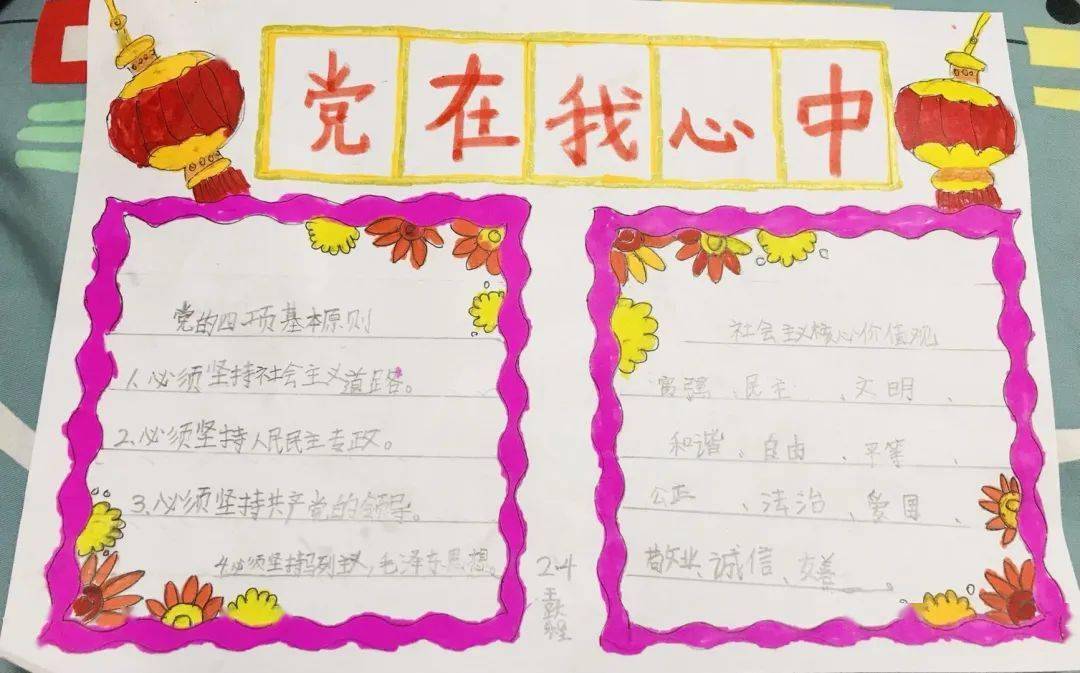 党在我心中
党的四项基本原则
1.必须坚持社会主义道路。
2.必须坚持人民民主专政。
3.必须坚持共产党的领导。
4.必须坚持马列主义,毛泽东思想。
社会主义核心价值观
富强、民主、文明、
和谐、自由、平等、
公正、法治、爱国、
敬业、诚信、友善。
2.4
王